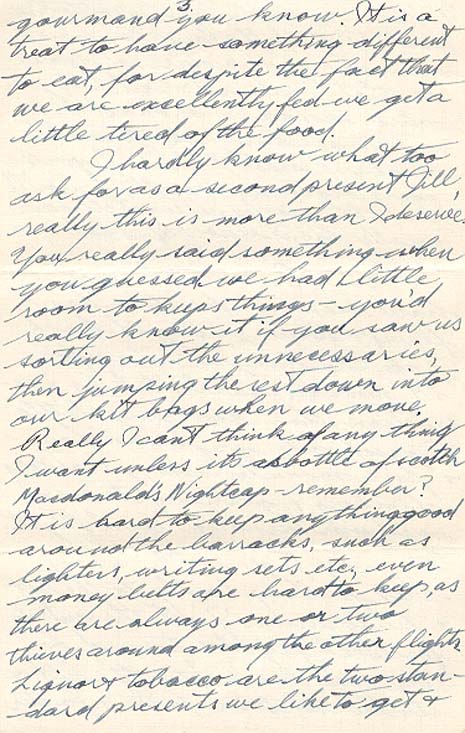 3.
gourmand you know. It is a
treat to have something different
to eat, for despite the fact that
we are excellently fed we get a
little tired of the food.
I hardly know what too
ask for as a second present Jill,
really this is more than I deserve.
You really said something when
you guessed we had little
room to keep things - you'd
really know it if you saw us
sorting out the unnecessaries,
then jumping the rest down into
our kit bags when we move.
Really I can't think of any thing
I want unless its a bottle of scotch
Macdonald's Nightcap - remember?
It is hard to keep anything good
around the barracks, such as
lighters, writing sets etc; even
money belts are hard to keep, as
there are always one or two
thieves around among the other flights.
Liquor & tobacco are the two stan-
dard presents we like to get &